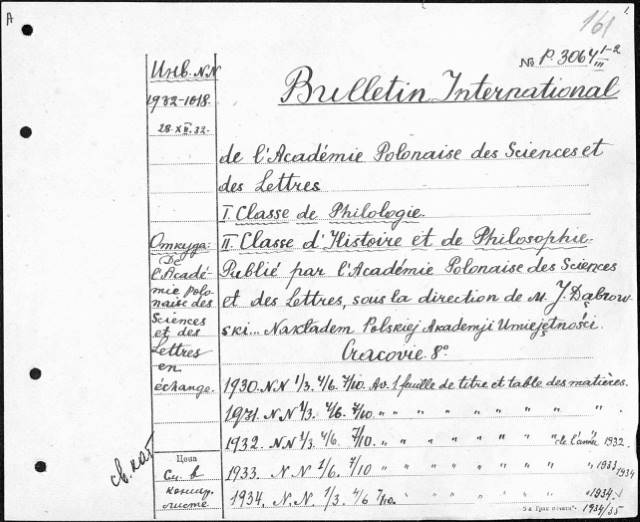 A
161
№ P. 3064 1-2
III
Инв. N.N
1932-1018.
28·XII·32.
Bulletin International
de l'Académie Polonaise des Sciences et
des Lettres
I. Classe de Philologie.
Откуда: II. Classe d'Histoire et de Philosophie.
De
l'Acadé-
mie Polo-
naise des
Sciences
et des
Lettres
en
échange.
Publié par l'Académie Polonaise des Sciences
et des Lettres, sous la direction de M. J. Dąbrow-
ski... Nakładem Polskiej Akademji Umiejętności.
Cracovie. 8°.
1930. N.N 1/3. 4/6. 7/10. Av. 1 feuille de titre et table des matières.
1931. N.N 1/3. 4/6. 7/10. " " " " " " " " ".
1932. N.N 1/3. 4/6. 7/10. " " " " " " " " de l'année 1932.
1933. N.N 1/6. 7/10 " " " " " " " " 1933, 1934
1934. N.N. 1/3. 4/6 7/10. " " " " " " " "1934.
1934/35
св. кат
Цена
См. в
контр.
листе